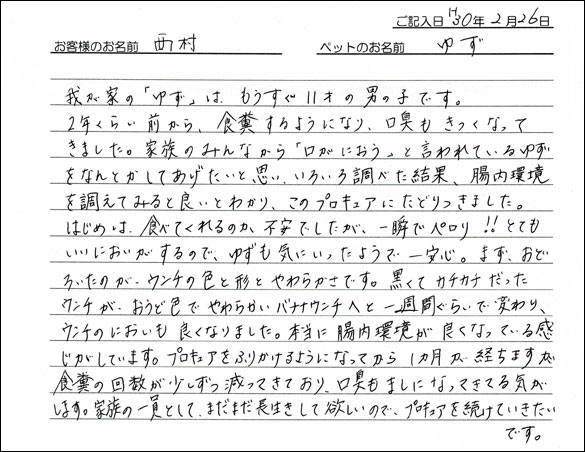 ご記入日 H30年2月26日
お客様のお名前 西村 ペットのお名前 ゆず
我が家の「ゆず」は、もうすぐ11才の男の子です。
2年くらい前から、食糞するようになり、口臭もきつくなって
きました。家族のみんなから「口がにおう」と言われているゆず
をなんとかしてあげたいと思い、いろいろ調べた結果、腸内環境
を調えてみると良いとわかり、このプロキュアにたどりつきました。
はじめは、食べてくれるのか、不安でしたが、一瞬でペロリ!!とても
いいにおいがするので、ゆずも気にいったようで一安心。まず、おど
ろいたのが、ウンチの色と形とやわらかさです。黒くてカチカチだった
ウンチが、おうど色でやわらかいバナナウンチへと一週間ぐらいで変わり、
ウンチのにおいも良くなりました。本当に腸内環境が良くなっている感
じがしています。プロキュアをふりかけるようになってから1ヵ月が経ちますが
食糞の回数が少しずつ減ってきており、口臭もましになってきてる気が
します。家族の一員として、まだまだ長生きして欲しいので、プロキュアを続けていきたい
です。